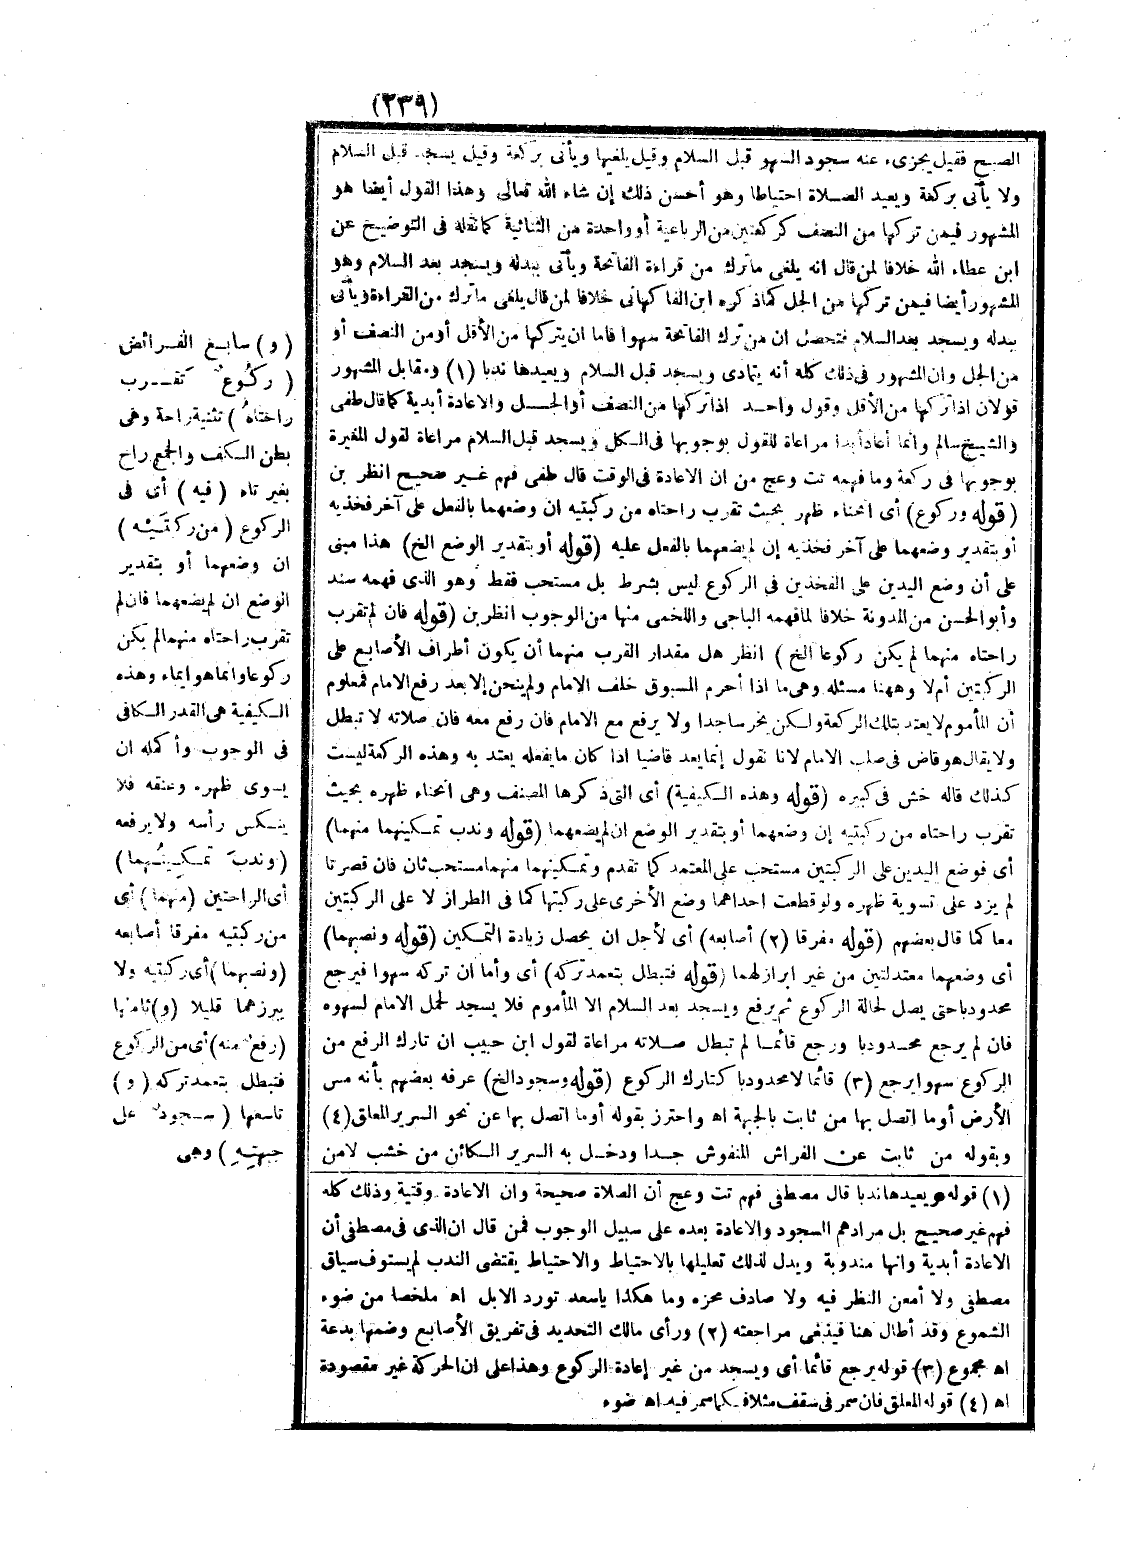 (٢٣٩)
الصبح فقيل يجزىء عنه سجود السهو قبل السلام وقيل يلغيها ويأتى بركعة وقيل يسجد قبل السلام
ولا يأتى بركعة ويعيد الصلاة احتياطا وهو أحسن ذلك إن شاء الله تعالى وهذا القول أيضا هو
المشهور فيمن تركها من النصف كركعتين من الرباعية أو واحدة من الثنائية كما نقله فى التوضيح عن
ابن عطاء الله خلافا لمن قال انه يلغى ماترك من قراءة الفاتحة ويأتى ببدله ويسجد بعد السلام وهو
المشهور أيضا فيمن تركها من الجل كما ذكره ابن الفاكهانى خلافا لمن قال يلغى ماترك من القراءة ويأتى
ببدله ويسجد بعد السلام فتحصل ان من ترك الفاتحة سهوا فاما ان يتركها من الأقل أو من النصف أو
من الجل وان المشهور فى ذلك كله أنه يتمادى ويسجد قبل السلام ويعيدها ندبا (١) ومقابل المشهور
قولان اذا تركها من الأقل وقول واحد اذا تركها من النصف أو الجل والاعادة أبدية كما قال طفى
والشيخ سالم وانما أعاد أبدا مراعاة للقول بوجوبها فى الكل ويسجد قبل السلام مراعاة لقول المغيرة
بوجوبها فى ركعة وما فهمه تت وعج من ان الاعادة فى الوقت قال طفى فهم غير صحيح انظر بن
(قوله وركوع) أى انحناء ظهر بحيث تقرب راحتاه من ركبتيه ان وضعهما بالفعل على آخر فخذيه
أو بتقدير وضعهما على آخر فخذيه إن لم يضعهما بالفعل عليه (قوله أو بتقدير الوضع الخ) هذا مبنى
على أن وضع اليدين على الفخذين فى الركوع ليس بشرط بل مستحب فقط وهو الذى فهمه سند
وأبو الحسن من المدونة خلافا لما فهمه الباجى واللخمى منها من الوجوب انظر بن (قوله فان لم تقرب
راحتاه منهما لم يكن ركوعا الخ) انظر هل مقدار القرب منهما أن يكون أطراف الأصابع على
الركبتين أم لا وههنا مسئله وهى ما اذا أحرم المسبوق خلف الامام ولم ينحن إلا بعد رفع الامام فمعلوم
أن المأموم لا يعتد بتلك الركعة ولكن يخر ساجدا ولا يرفع مع الامام فان رفع معه فان صلاته لا تبطل
ولا يقال هو قاض فى صلب الامام لانا نقول إنما يعد قاضيا اذا كان ما يفعله يعتد به وهذه الركعة ليست
كذلك قاله خش فى كبيره (قوله وهذه الكيفية) أى التى ذكرها المصنف وهى انحناء ظهره بحيث
تقرب راحتاه من ركبتيه إن وضعهما أو بتقدير الوضع ان لم يضعهما (قوله وندب تمكينهما منهما)
أى فوضع اليدين على الركبتين مستحب على المعتمد كما تقدم وتمكينهما منهما مستحب ثان فان قصرتا
لم يزد على تسوية ظهره ولو قطعت احداهما وضع الأخرى على ركبتها كما فى الطراز لا على الركبتين
معا كما قال بعضهم (قوله مفرقا (٢) أصابعه) أى لأجل ان يحصل زيادة التمكين (قوله ونصبهما)
أى وضعهما معتدلتين من غير ابراز لهما (قوله فتبطل بتعمد تركه) أى وأما ان تركه سهوا فيرجع
محدودبا حتى يصل لحالة الركوع ثم يرفع ويسجد بعد السلام الا المأموم فلا يسجد لحمل الامام لسهوه
فان لم يرجع محدودبا ورجع قائما لم تبطل صلاته مراعاة لقول ابن حبيب ان تارك الرفع من
الركوع سهوا يرجع (٣) قائما لا محدودبا كتارك الركوع (قوله وسجود الخ) عرفه بعضهم بأنه مس
الأرض أو ما اتصل بها من ثابت بالجبهة اه واحترز بقوله أو ما اتصل بها عن نحو السرير المعلق (٤)
وبقوله من ثابت عن الفراش المنفوش جدا ودخل به السرير الكائن من خشب لا من
(و) سابع الفرائض
(ركُوعٌ تقرب
راحتاهُ) تثنية راحة وهى
بطن الكف والجمع راح
بغير تاء (فيه) أى فى
الركوع (من ركبَتَيْه)
ان وضعهما أو بتقدير
الوضع ان لم يضعهما فان لم
تقرب راحتاه منهما لم يكن
ركوعا وانما هو ايماء وهذه
الكيفية هى القدر الكافى
فى الوجوب وأكمله ان
يسوى ظهره وعنقه فلا
ينكس رأسه ولا يرفعه
(وندبَ تمكينُهما)
أى الراحتين (منهما) أى
من ركبتيه مفرقا أصابعه
(ونصبهما) أى ركبتيه ولا
يبرزهما قليلا (و) ثامنها
(رفعٌ منه) أى من الركوع
فتبطل بتعمد تركه (و)
تاسعها (سجودٌ على
جبهتِهِ) وهى
(١) قوله ويعيدها ندبا قال مصطفى فهم تت وعج أن الصلاة صحيحة وان الاعادة وقتية وذلك كله
فهم غير صحيح بل مرادهم السجود والاعادة بعده على سبيل الوجوب فمن قال ان الذى فى مصطفى أن
الاعادة أبدية وانها مندوبة ويدل لذلك تعليلها بالاحتياط والاحتياط يقتضى الندب لم يستوف سياق
مصطفى ولا أمعن النظر فيه ولا صادف محزه وما هكذا ياسعد تورد الابل اه ملخصا من ضوء
الشموع وقد أطال هنا فينبغى مراجعته (٢) ورأى مالك التحديد فى تفريق الأصابع وضمها بدعة
اه مجموع (٣) قوله يرجع قائما أى ويسجد من غير إعادة الركوع وهذا على ان الحركة غير مقصودة
اه (٤) قوله المعلق فان سمر فى سقف مثلا فكما سمر فيه اه ضوء